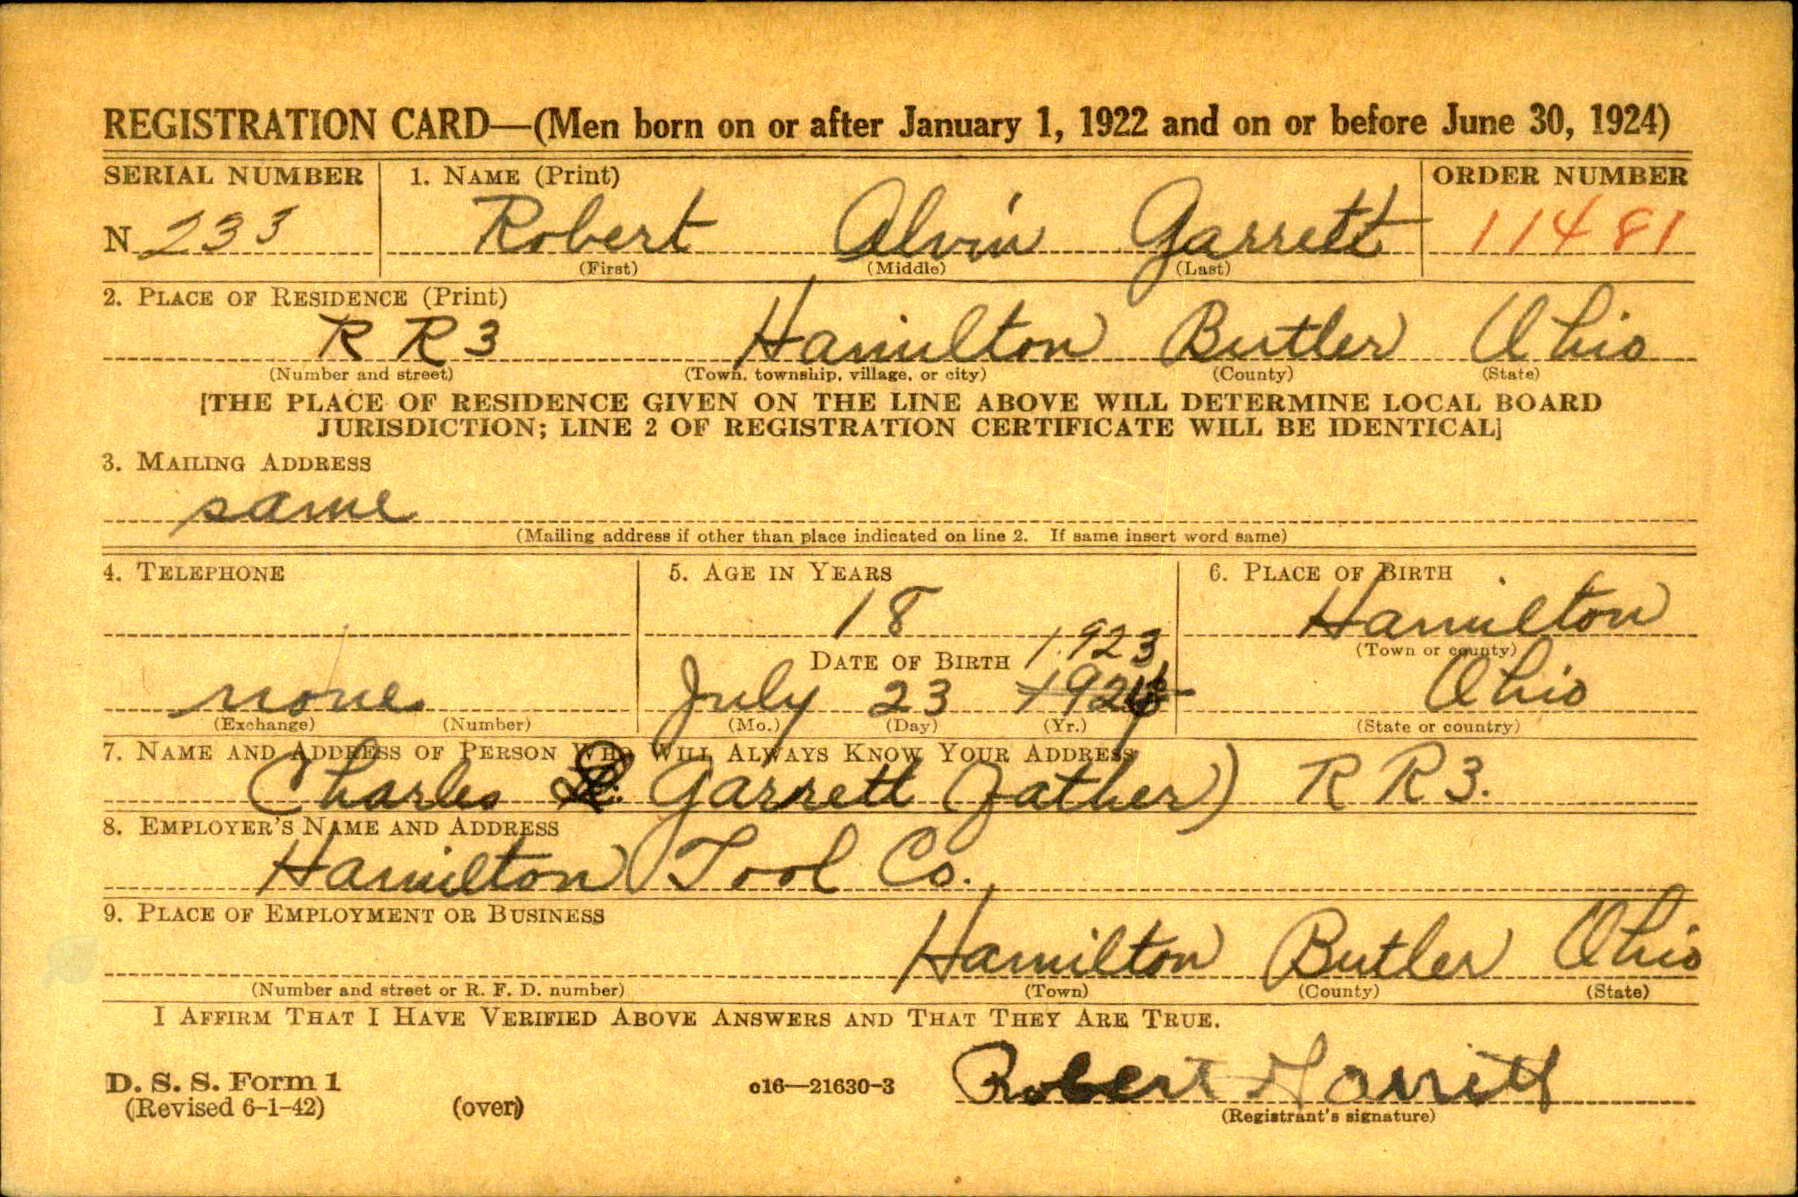 REGISTRATION CARD—(Men born on or after January 1, 1922 and on or before June 30, 1924)
SERIAL NUMBER 1. NAME (Print) ORDER NUMBER
N 233 Robert Alvin Garrett 11481
(First) (Middle) (Last)
2. PLACE OF RESIDENCE (Print)
R R 3 Hamilton Butler Ohio
(Number and street) (Town, township, village, or city) (County) (State)
[THE PLACE OF RESIDENCE GIVEN ON THE LINE ABOVE WILL DETERMINE LOCAL BOARD
JURISDICTION; LINE 2 OF REGISTRATION CERTIFICATE WILL BE IDENTICAL]
3. MAILING ADDRESS
same
(Mailing address if other than place indicated on line 2. If same insert word same)
4. TELEPHONE 5. AGE IN YEARS 6. PLACE OF BIRTH
18 Hamilton
(Town or county)
DATE OF BIRTH 1923
none July 23 Ohio
(Exchange) (Number) (Mo.) (Day) (Yr.) (State or country)
7. NAME AND ADDRESS OF PERSON WHO WILL ALWAYS KNOW YOUR ADDRESS
Charles Garrett (father) R R 3.
8. EMPLOYER'S NAME AND ADDRESS
Hamilton Tool Co.
9. PLACE OF EMPLOYMENT OR BUSINESS
Hamilton Butler Ohio
(Number and street or R. F. D. number) (Town) (County) (State)
I AFFIRM THAT I HAVE VERIFIED ABOVE ANSWERS AND THAT THEY ARE TRUE.
D. S. S. Form 1 c16—21630-3 Robert Garrett
(Revised 6-1-42) (over) (Registrant's signature)